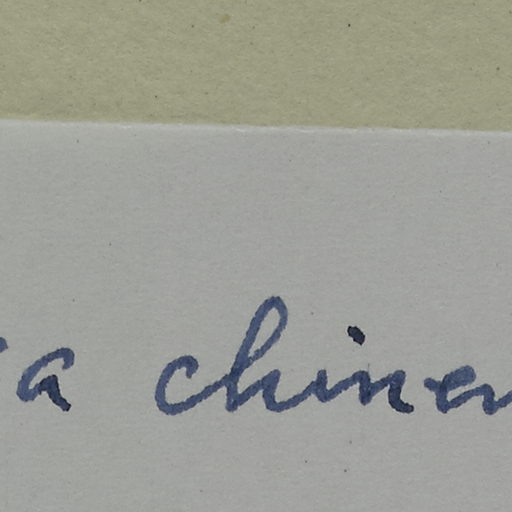 a chinen